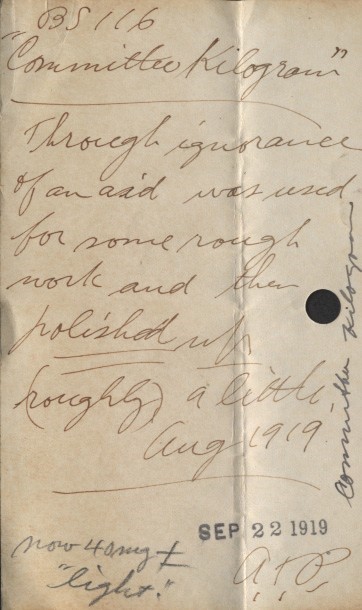 BS 116
"Committee Kilogram"
Through ignorance
of an aid was used
for some rough
work and then
polished up
(roughly) a little,
Aug 1919.
Committee Kilogram
SEP 22 1919
now 40mg ±
"light."